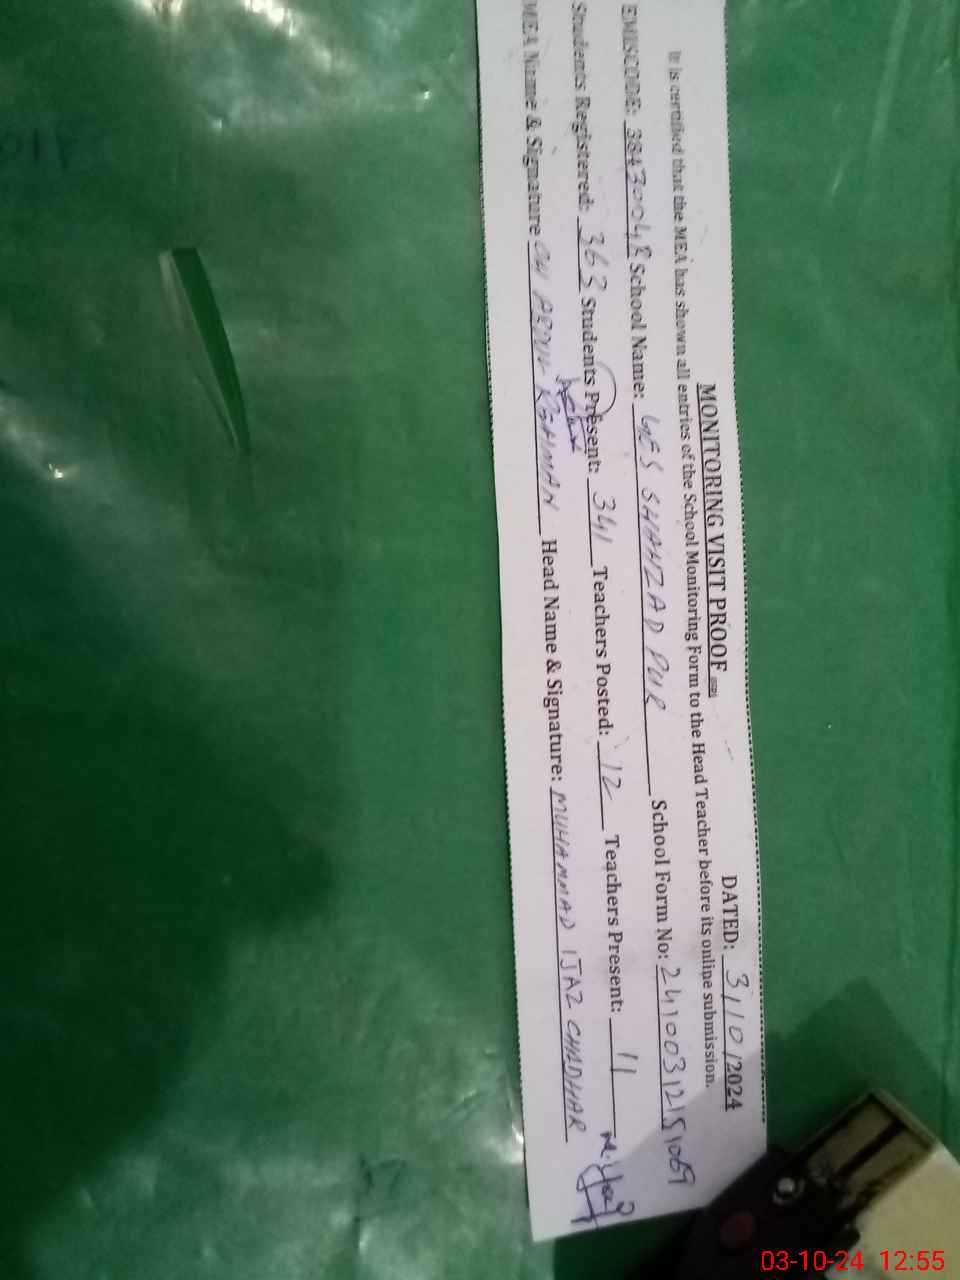 MONITORING VISIT PROOF
DATED: 3/10/2024
It is certified that the MEA has shown all entries of the School Monitoring Form to the Head Teacher before its online submission.
EMISCODE: 38430048 School Name: GES SHAHZAD PUR School Form No: 24100312151069
Students Registered: 363 Students Present: 341 Teachers Posted: 12 Teachers Present: 11
MEA Name & Signature CH REHMAN Head Name & Signature: MUHAMMAD IJAZ CHADHAR
03-10-24 12:55